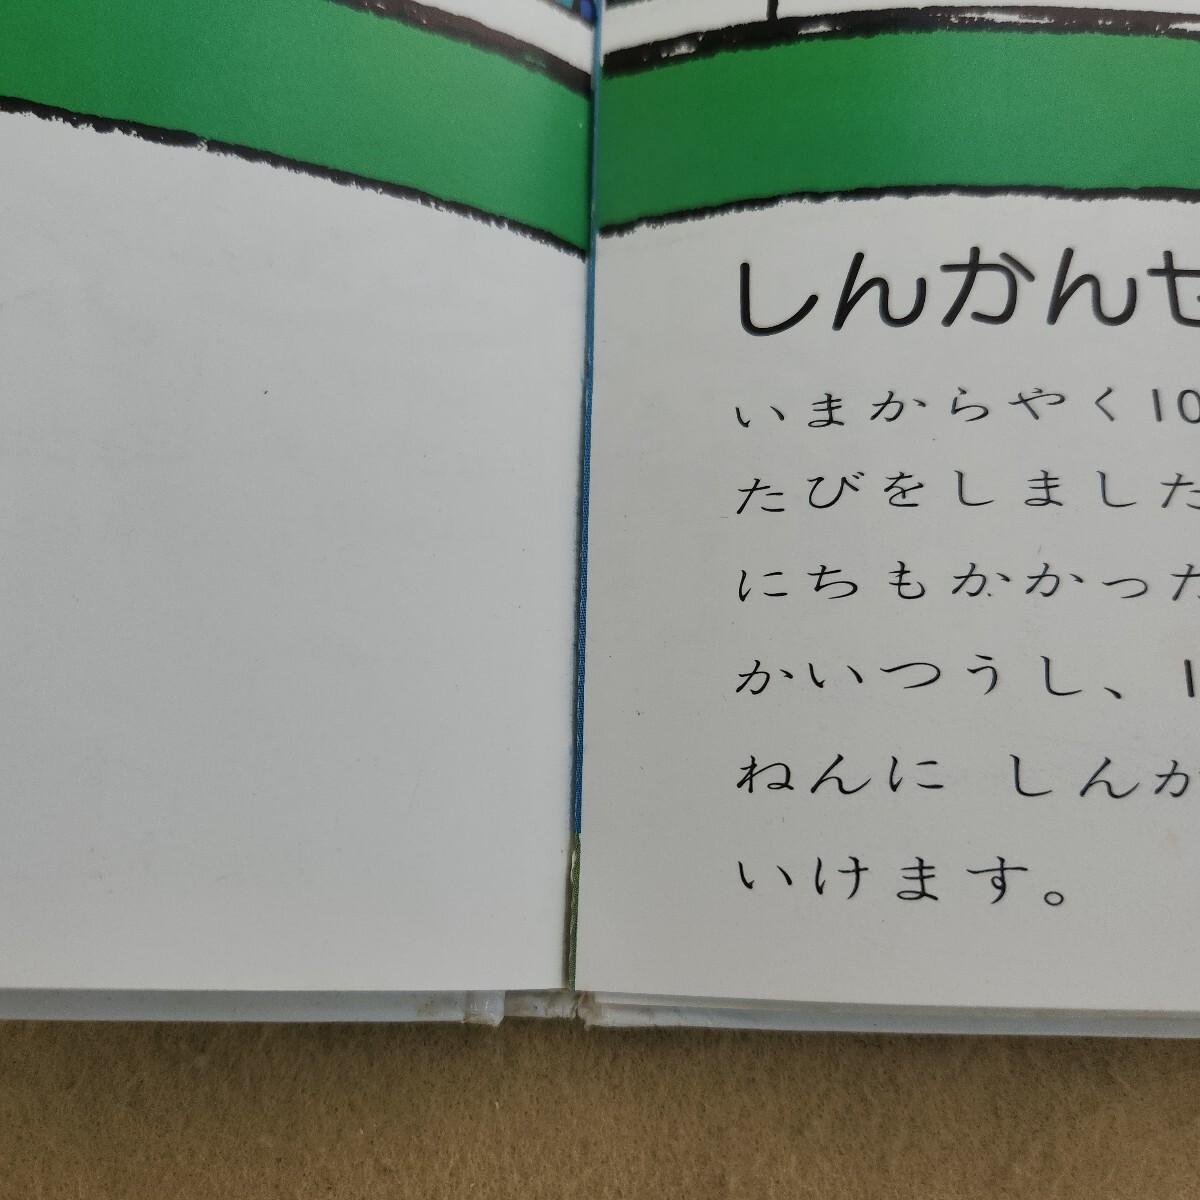 しんかんせ
いまからやく10
たびをしました
にちもかかった
かいつうし、1
ねんに しんか
いけます。